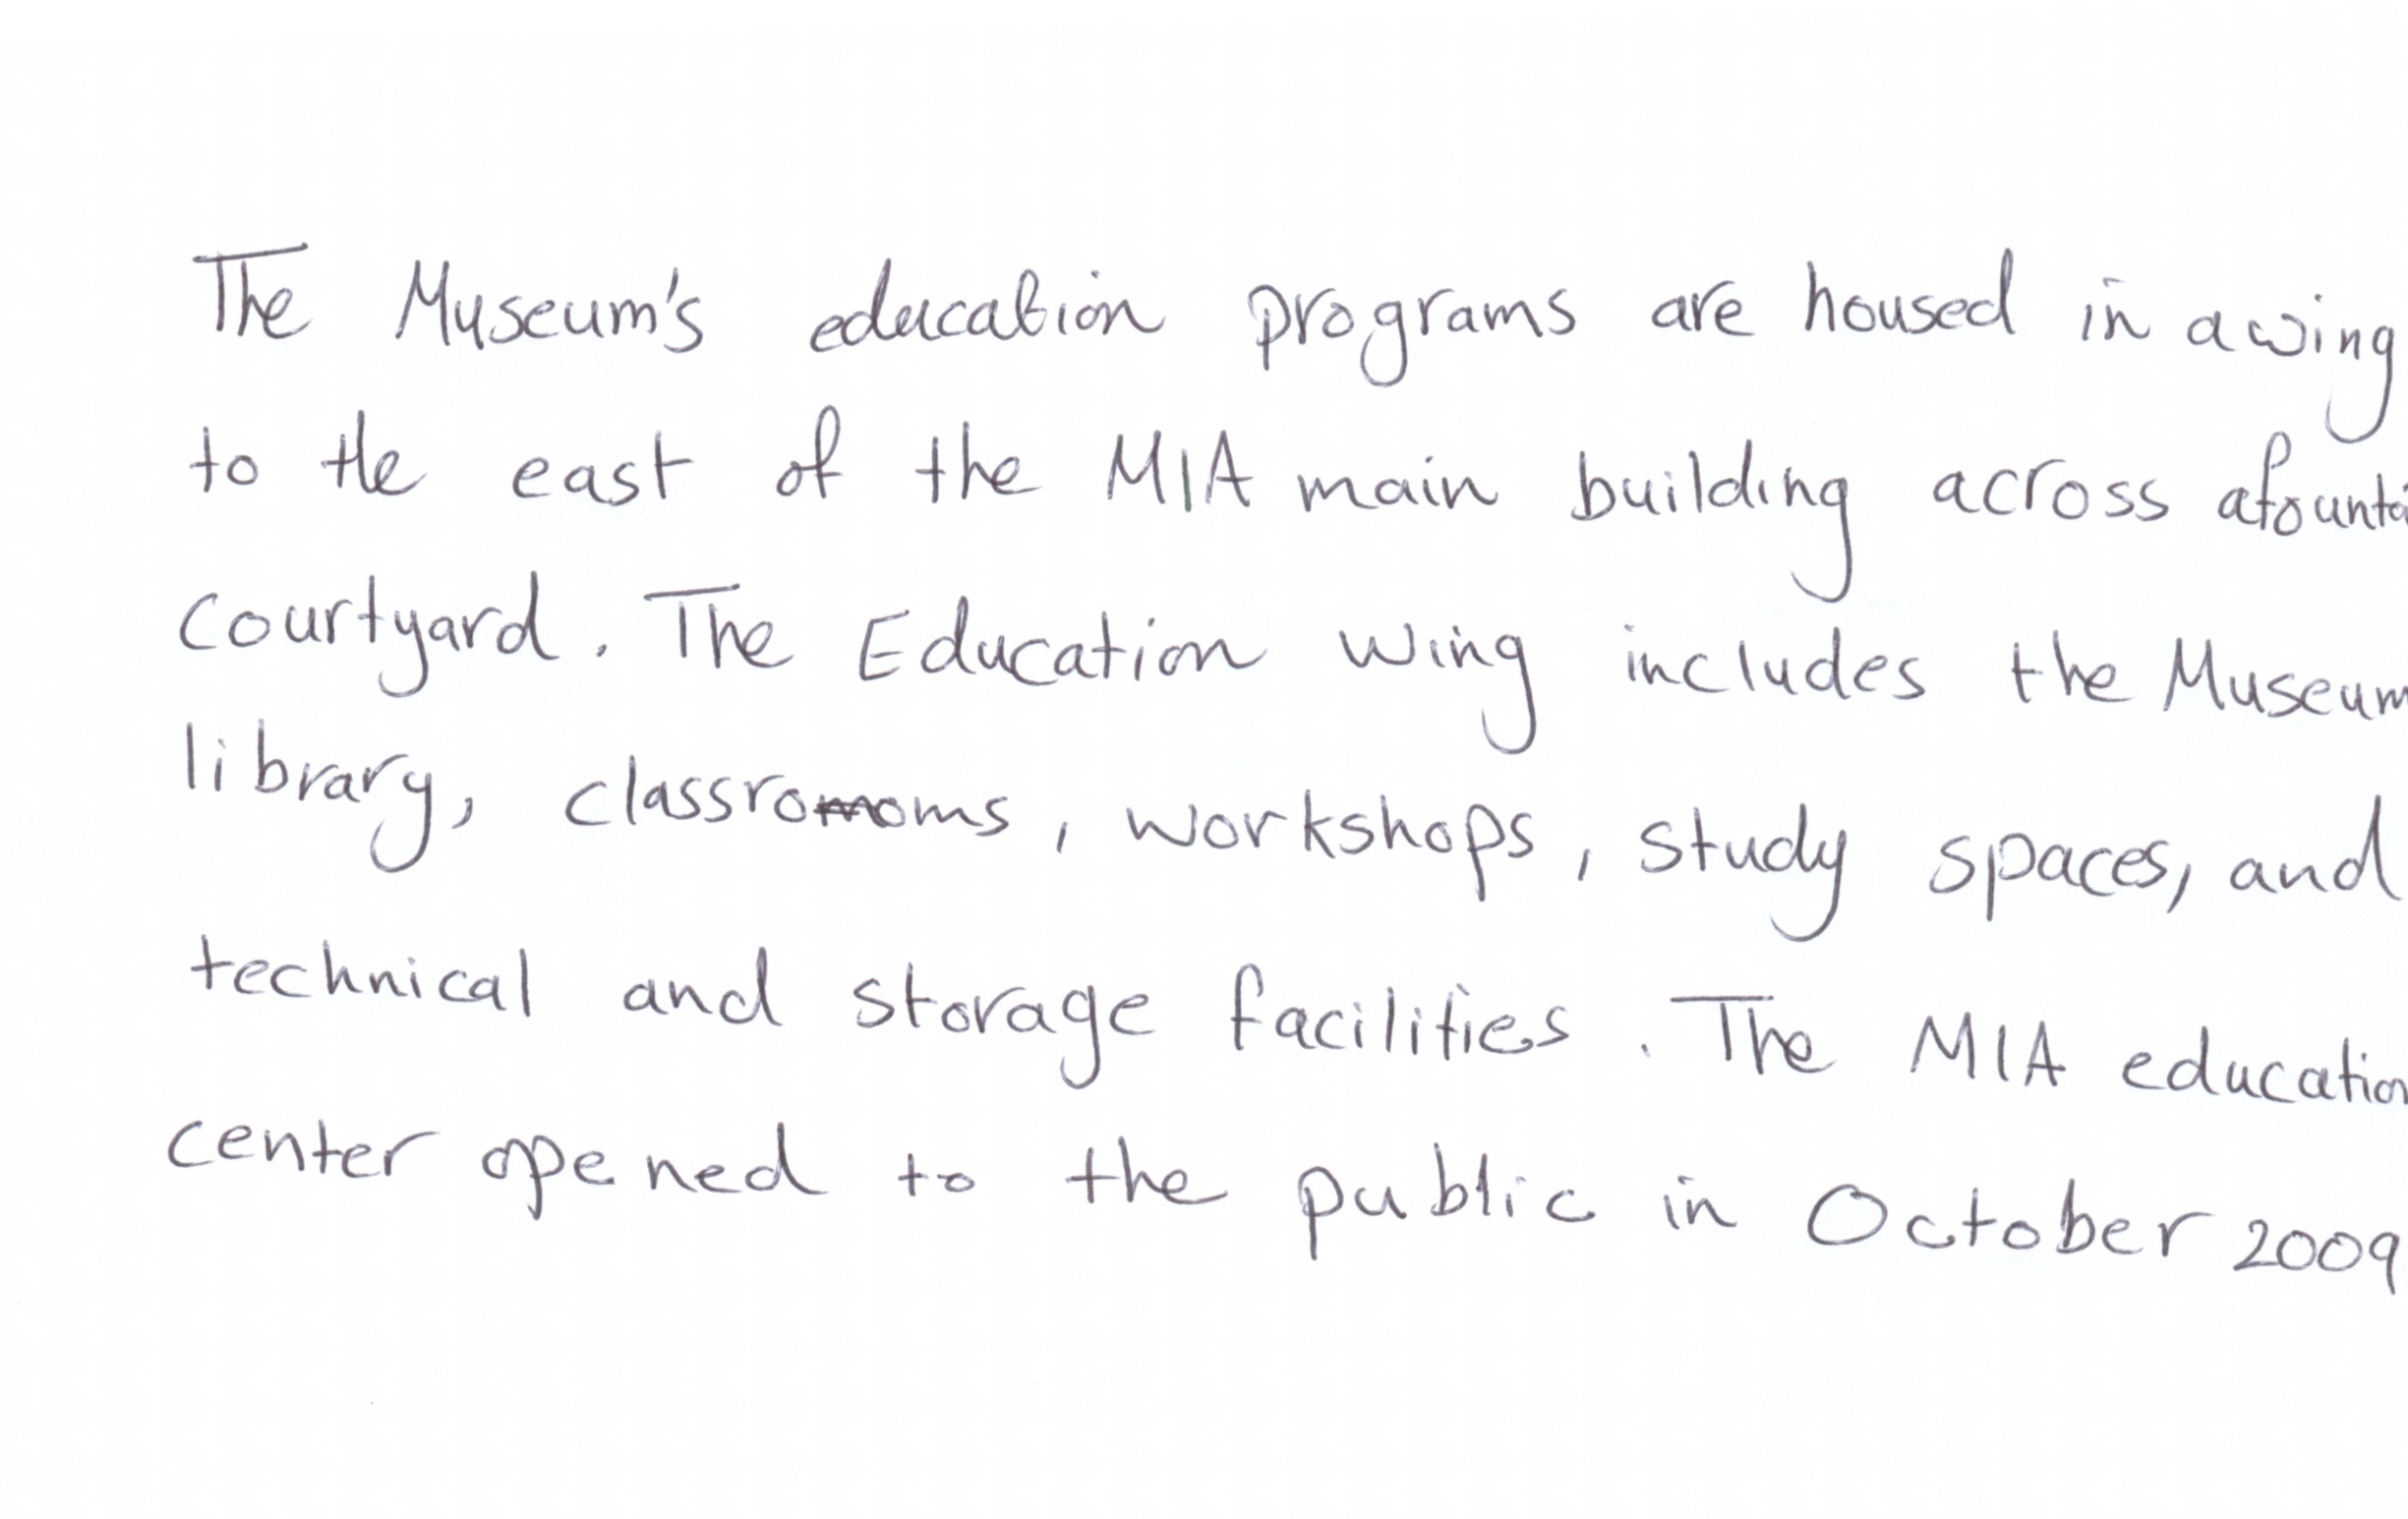 The Museum's education programs are housed in a wing
to the east of the MIA main building across a founta
courtyard. The Education wing includes the Museum
library, classrooms, workshops, study spaces, and
technical and storage facilities. The MIA education
center opened to the public in October 2009